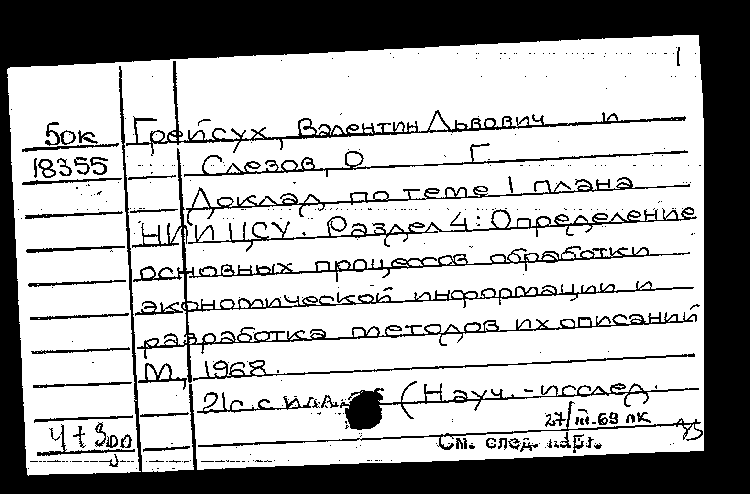 1
5ок Грейсух, Валентин Львович и
18355 Слезов, О Г
Доклад по теме 1 плана
НИИ ЦСУ. Раздел 4: Определение
основных процессов обработки
экономической информации и
разработка методов их описаний
М., 1968.
21с. с илл. (Науч.-исслед.
27/III-69 лк
См. след. карт.